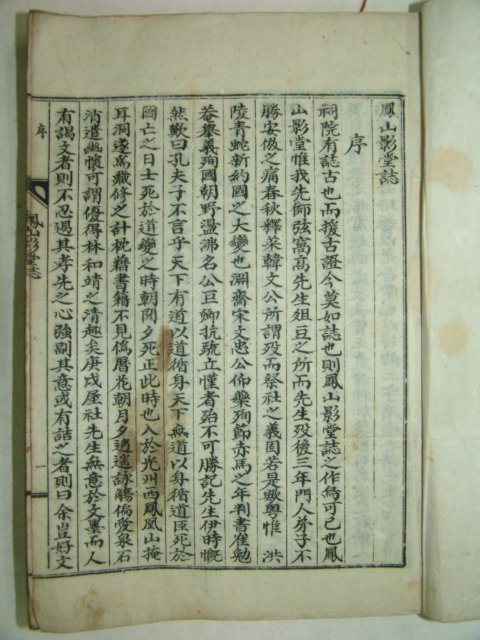 鳳山影堂誌
序
祠院有誌古也而援古證今莫如誌也則鳳山影堂誌之作烏可已也鳳
山影堂惟我先師弦窩高先生俎豆之所而先生歿後三年門人弟子不
勝安倣之痛春秋釋菜韓文公所謂歿而祭社之義固若是歟粤惟 洪
陵青蛇新約國之大變也淵齋宋文忠公仰藥殉節赤馬之年判書崔勉
菴擧義殉國朝野盪沸名公巨卿抗疏立慬者殆不可勝記先生伊時慨
然歎曰孔夫子不言乎天下有道以道循身天下無道以身循道臣死於
國亡之日士死於道變之時朝聞夕死正此時也入於光州西鳳凰山掩
耳洞遂爲藏修之計枕藉書籍不見僞曆花朝月夕逍遙詠觴偏愛泉石
消遣幽懷可謂優得林和靖之清趣矣庚戌屋社先生無意於文墨而人
有謁文者則不忍遏其孝先之心強副其意或有詰之者則曰余豈好文
序
鳳山影堂誌
一